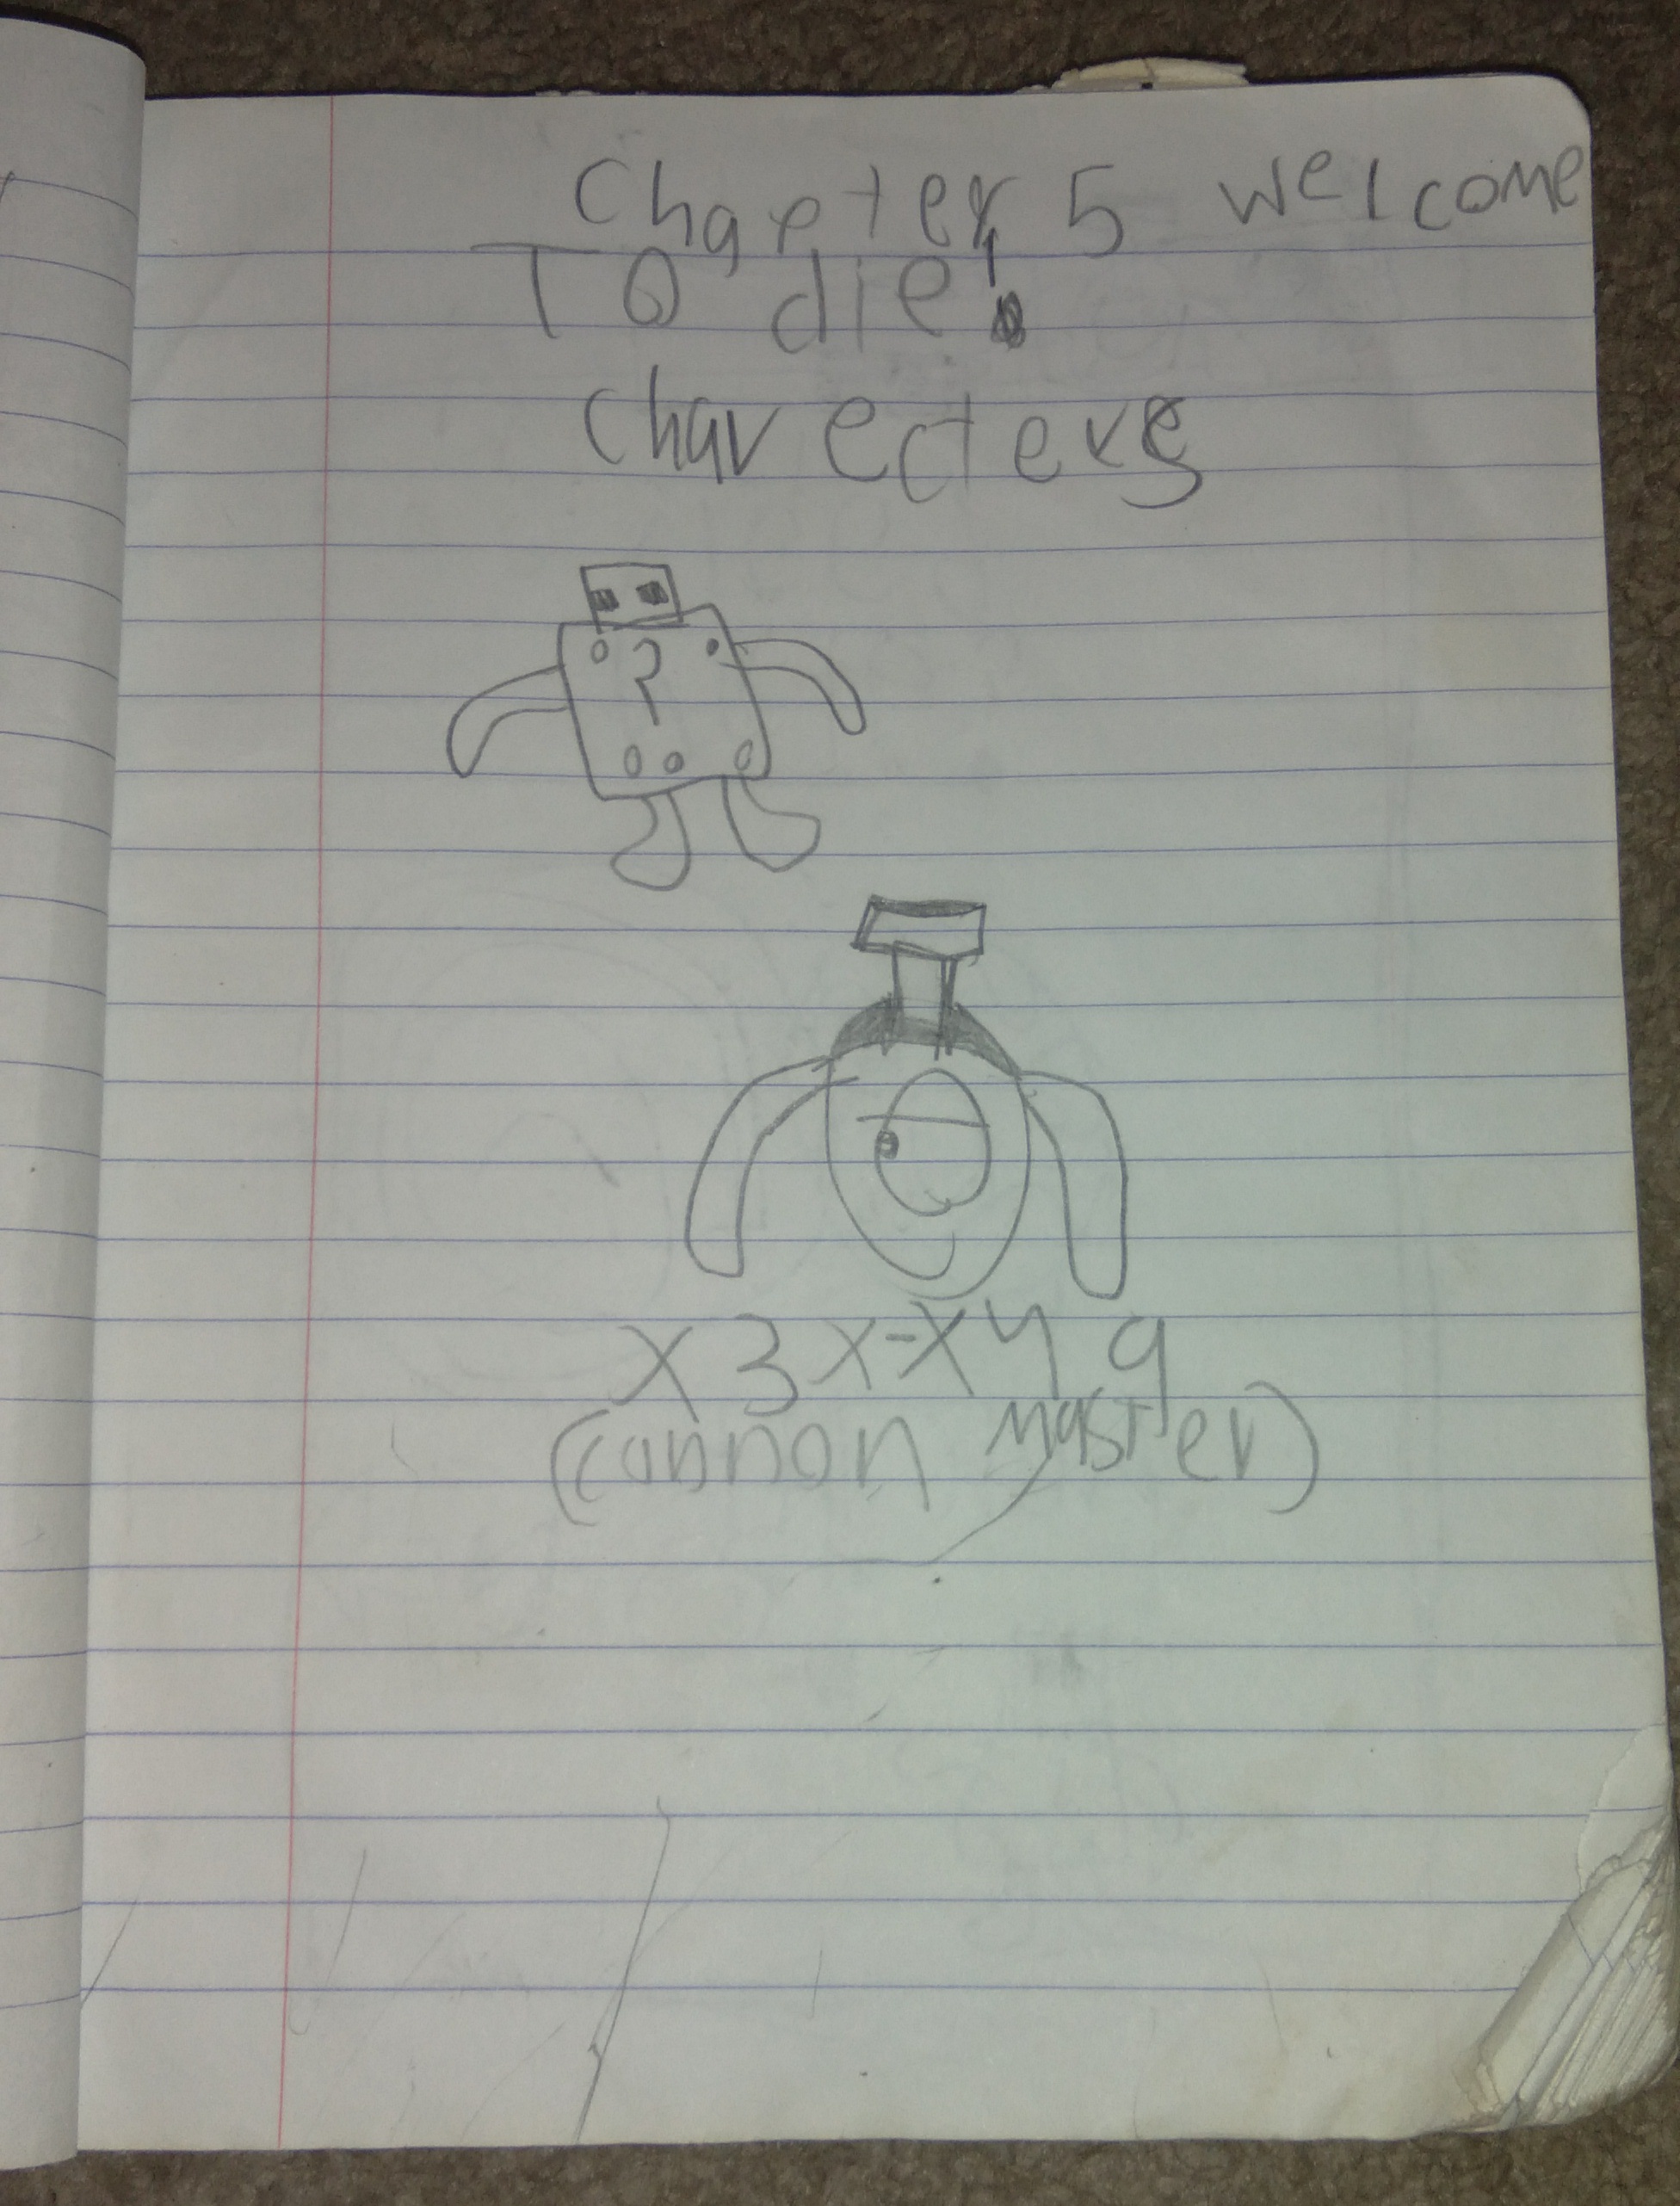 Chapter 5 welcome
To die!
Charecters
?
x3x-x4g
(cannon master)